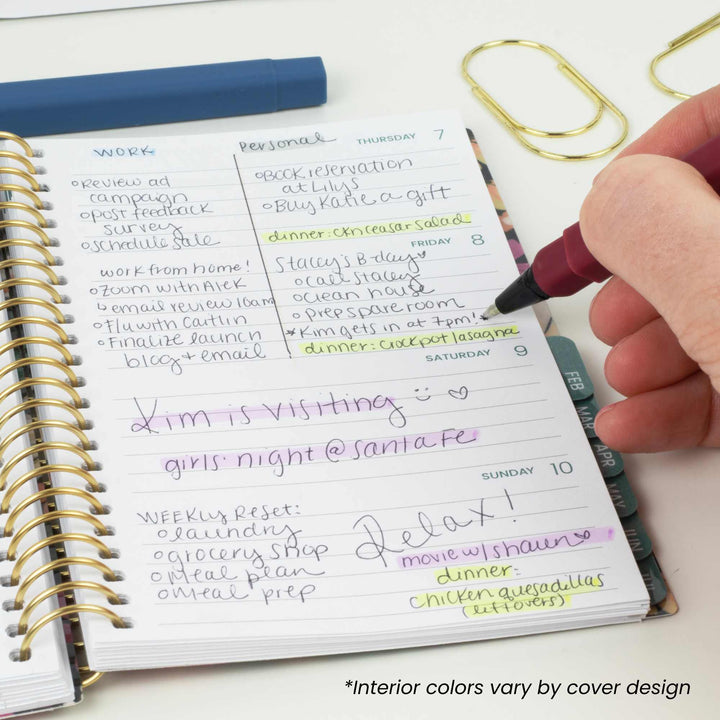 WORK
Personal
THURSDAY 7
Review ad
campaign
post feedback
survey
schedule sale
BOOK reservation
at Lilys
Buy Katie a gift
dinner: ckn ceasar salad
FRIDAY 8
work from home!
zoom with Alek
email review 10am
F/u with Caitlin
Finalize launch
blog + email
Stacey's B-day
call Stacey
clean house
prep spare room
*Kim gets in at 7pm!*
dinner: crockpot lasagna
SATURDAY 9
Kim is visiting
girls' night @ Santa Fe
SUNDAY 10
WEEKLY Reset:
laundry
grocery shop
meal plan
meal prep
Relax!
movie w/ shaun
dinner:
chicken quesadillas
(leftovers)
FEB
MAR
APR
MAY
JUN
JUL
*Interior colors vary by cover design